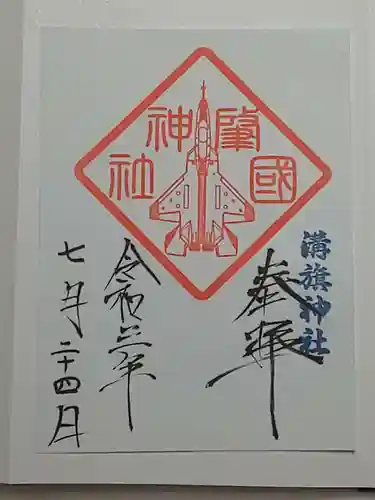 肇國
神社
溝旗神社
奉拝
令和三年
七月二十四日